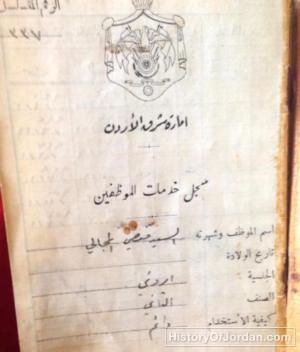 الرقم المتسلسل
٣٣٧
امارة شرق الأردن
سجل خدمات الموظفين
اسم الموظف وشهرته السيد المجالي
تاريخ الولادة
الجنسية اردني
الصنف الثاني
كيفية الأستخدام دائم
HistoryOfJordan.com